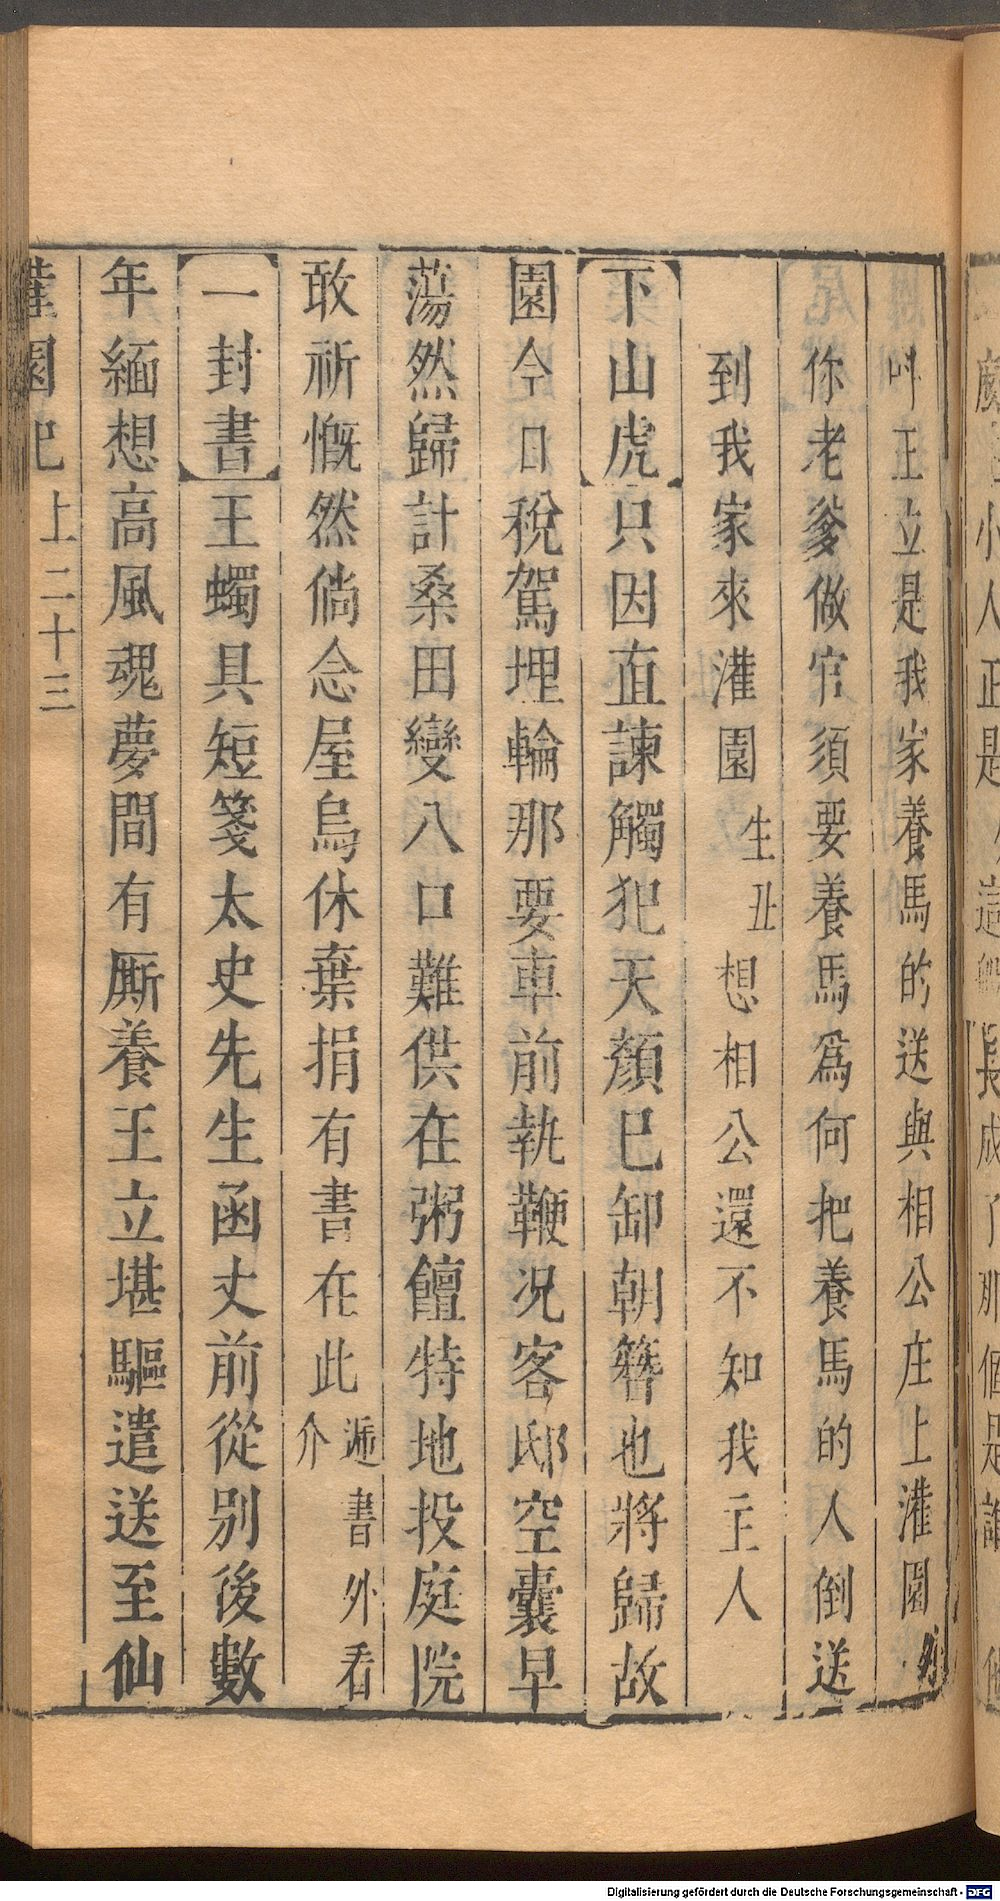 叫王立是我家養馬的送與相公庄上灌園外
你老爹做官須要養馬爲何把養馬的人倒送
到我家來灌園生丑想相公還不知我主人
下山虎只因直諫觸犯天顏巳卸朝簪也將歸故
園今日稅駕埋輪那要車前執鞭况客邸空囊早
蕩然歸計桑田變八口難供在粥饘特地投庭院
敢祈慨然倘念屋烏休棄捐有書在此介遞書外看
一封書王蠋具短箋太史先生函丈前從別後數
年緬想高風魂夢間有厮養王立堪驅遣送至仙
灌園記 上二十三
Digitalisierung gefördert durch die Deutsche Forschungsgemeinschaft - DFG